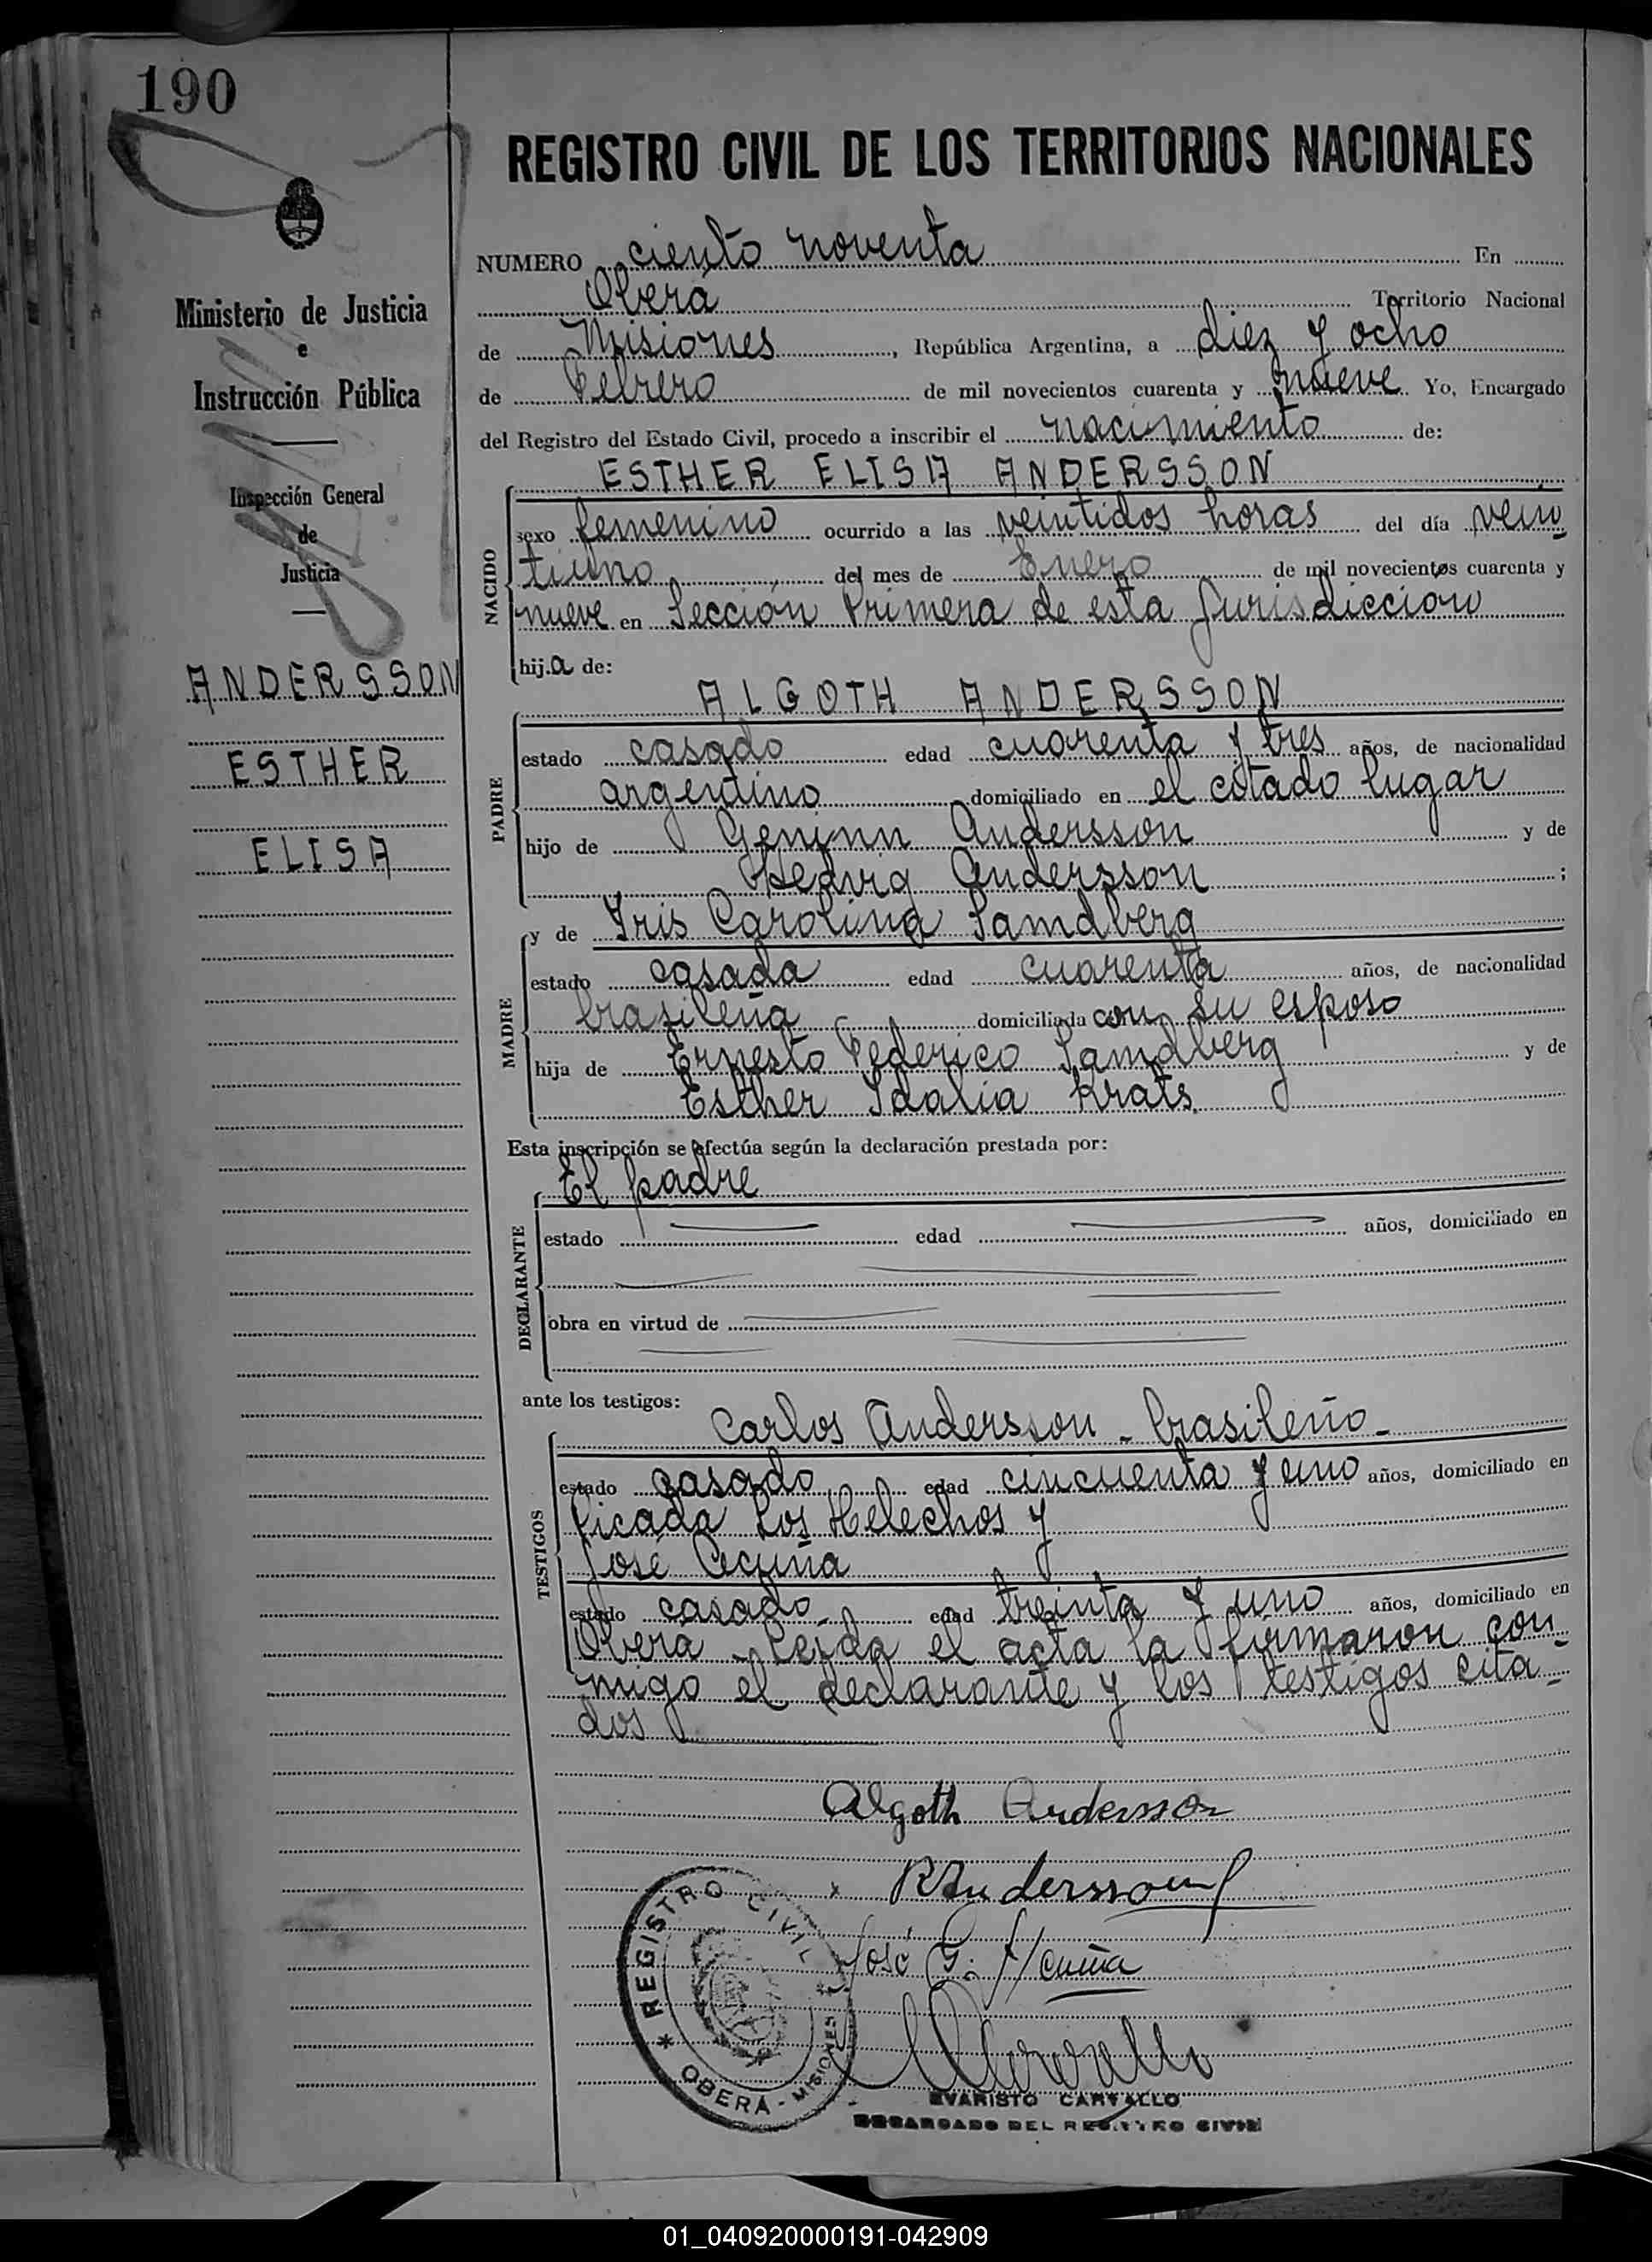 190
REGISTRO CIVIL DE LOS TERRITORIOS NACIONALES
Ministerio de Justicia
e
Instrucción Pública
Inspección General
de
Justicia
ANDERSSON
ESTHER
ELISA
NUMERO ciento noventa En
Oberá Territorio Nacional
de Misiones, República Argentina, a diez y ocho
de Febrero de mil novecientos cuarenta y nueve Yo, Encargado
del Registro del Estado Civil, procedo a inscribir el nacimiento de:
ESTHER ELISA ANDERSSON
NACIDO
sexo femenino ocurrido a las veintidos horas del día vein
tiuno del mes de Enero de mil novecientos cuarenta y
nueve en Sección Primera de esta Jurisdicción
hija de:
ALGOTH ANDERSSON
PADRE
estado casado edad cuarenta y tres años, de nacionalidad
argentino domiciliado en el citado lugar
hijo de Andersson y de
Hedvig Andersson;
MADRE
y de Iris Carolina Samdberg
estado casada edad cuarenta años, de nacionalidad
brasileña domiciliada con su esposo
hija de Ernesto Federico Samdberg y de
Esther Idalia Krats.
Esta inscripción se efectúa según la declaración prestada por:
El padre
DECLARANTE
estado edad años, domiciliado en
obra en virtud de
ante los testigos:
Carlos Andersson - brasileño -
TESTIGOS
estado casado edad cincuenta y uno años, domiciliado en
Picada Los Helechos y
José Acuña
estado casado edad treinta y uno años, domiciliado en
Oberá Leída el acta la firmaron con-
migo el declarante y los testigos cita-
dos
Algoth Andersson
Andersson
José G. Acuña
REGISTRO CIVIL
* OBERA - MISIONES *
EVARISTO CARVALLO
ENCARGADO DEL REGISTRO CIVIL
01_040920000191-042909